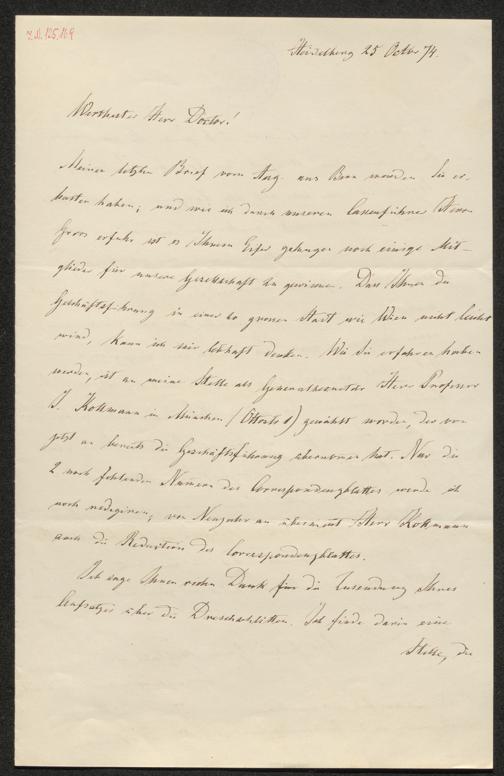 I.N. 125.169
Heidelberg 25 Octbr 74.
Werthester Herr Doctor!
Meinen letzten Brief vom Aug. aus Bonn werden Sie er-
halten haben; und wie ich durch unseren Cassenführer Herrn
Groos erfuhr ist es Ihrem Eifer gelungen noch einige Mit-
glieder für unsere Gesellschaft zu gewinnen. Dass Ihnen die
Geschäftsführung in einer so grossen Stadt wie Wien nicht leicht
wird, kann ich mir lebhaft denken. Wie Sie erfahren haben
werden, ist an meine Stelle als Generalsecretär Herr Professor
J. Kollmann in München (Ottostr 1) gewählt worden, der von
jetzt an bereits die Geschäftsführung übernommen hat. Nur die
2 noch fehlenden Numern des Correspondenzblattes werde ich
noch redigiren; von Neujahr an übernimt Herr Kollmann
auch die Redaction des Correspondenzblattes.
Ich sage Ihnen vielen Dank für die Zusendung Ihres
Aufsatzes über die . Ich finde darin eine
Stelle, die